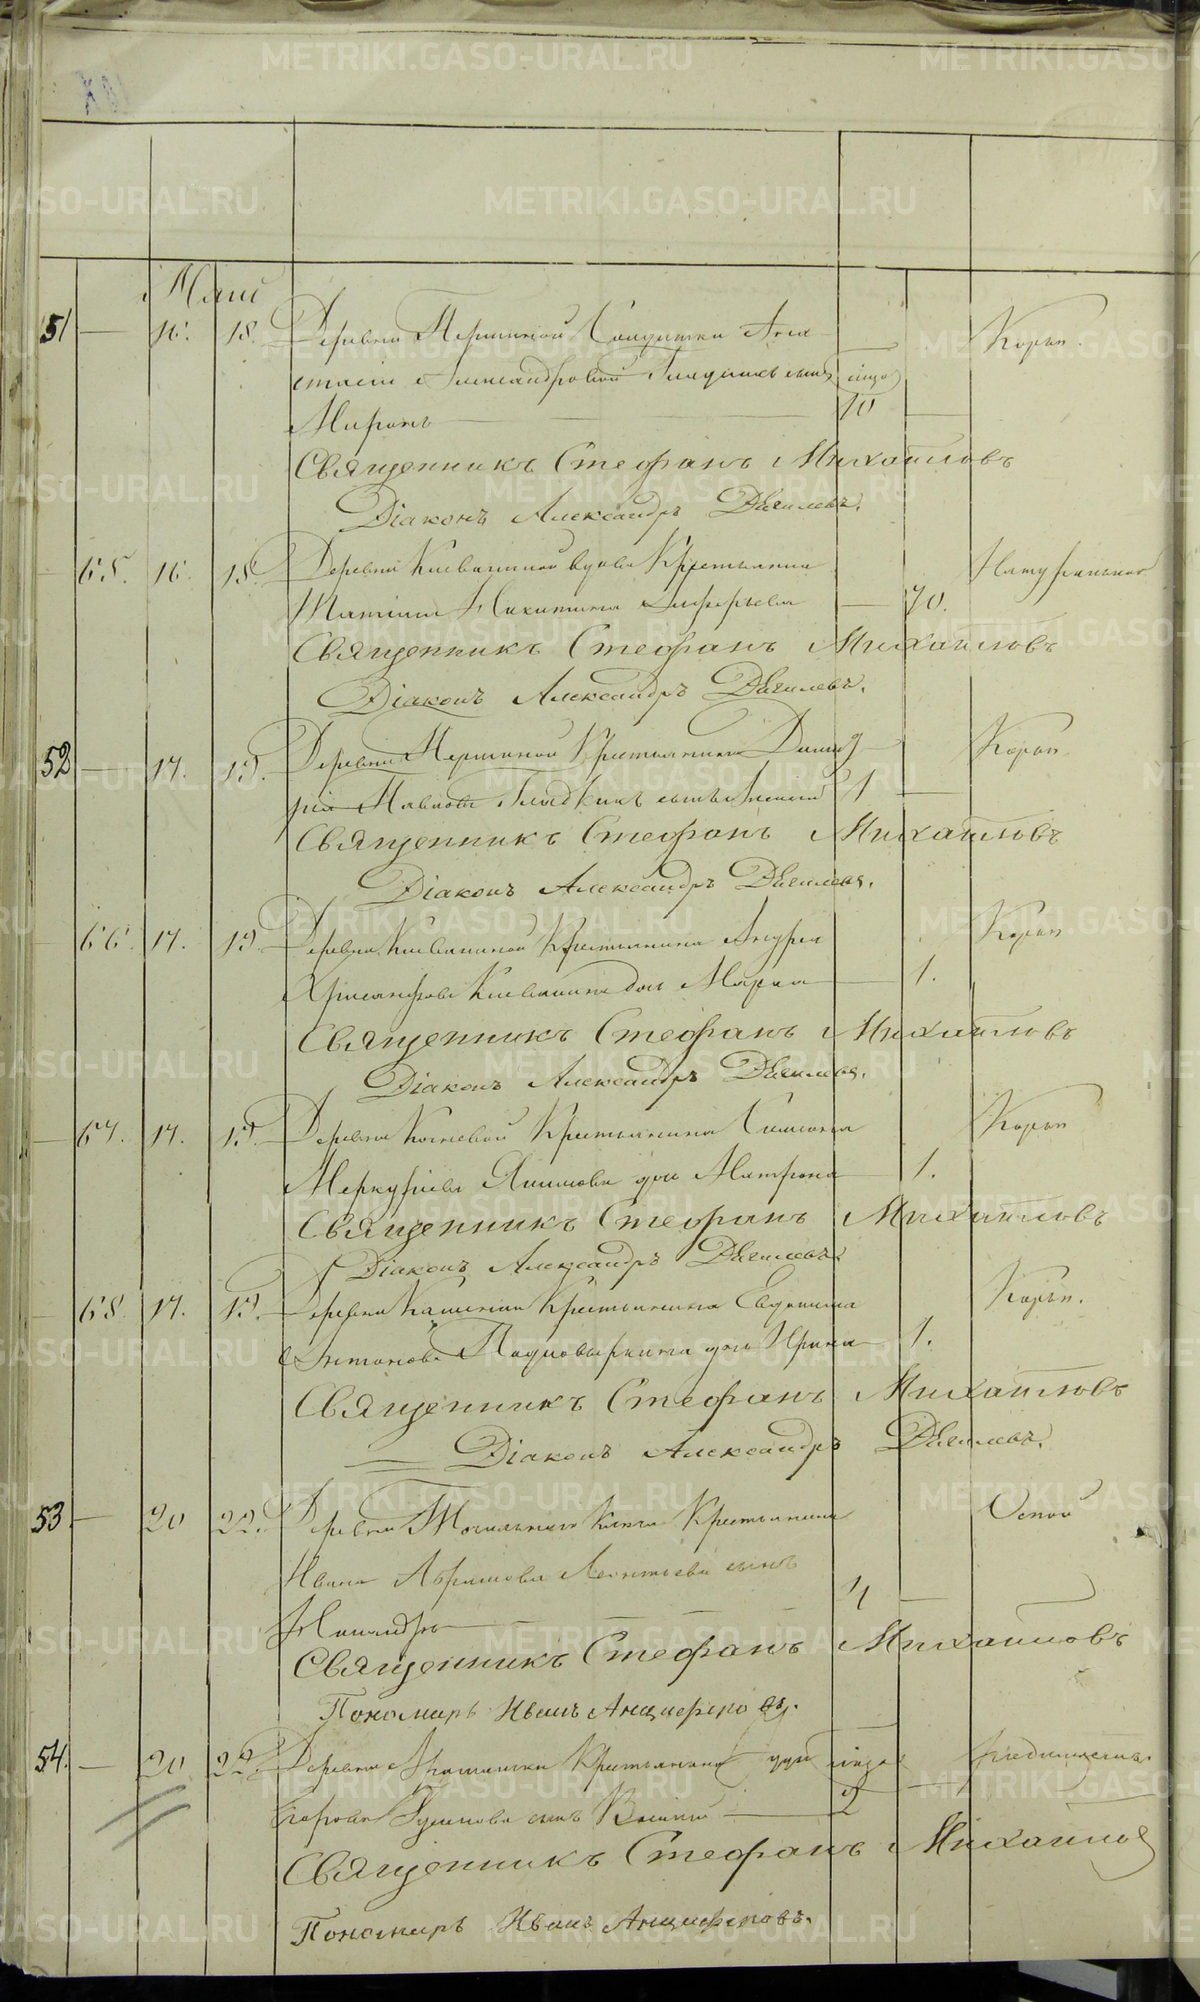 METRIKI.GASO-URAL.RU
Май
51 — 16. 18. Деревни Першиной Солдатки Анас-
тасіи Александровой сынъ
Миронъ — 10 — Корью.
Священникъ Стефанъ Михайловъ
Діаконъ Александръ Дягилевъ.
65. 16. 18. Деревни вдова Крестьянина
Никитина — 70. Натуральной
Священникъ Стефанъ Михайловъ
Діаконъ Александръ Дягилевъ.
52 — 17. 19. Деревни Першиной Крестьянина Димит-
рія Павлова сынъ 1 — Корью
Священникъ Стефанъ Михайловъ
Діаконъ Александръ Дягилевъ.
66. 17. 19. Деревни Крестьянина Андрея
Хрисанфова дочь Марѳа — 1. Корью
Священникъ Стефанъ Михайловъ
Діаконъ Александръ Дягилевъ.
67. 17. 19. Деревни Крестьянина Симеона
Меркуріева Якимова дочь Матрона — 1. Корью
Священникъ Стефанъ Михайловъ
Діаконъ Александръ Дягилевъ.
68. 17. 19. Деревни Крестьянина Евдокима
Антонова дочь Ирина — 1. Корью.
Священникъ Стефанъ Михайловъ
Діаконъ Александръ Дягилевъ.
53 — 20 22. Деревни Ключа Крестьянина
Ивана Абрамова Леонтьева сынъ
Никандръ — 4 — Оспой
Священникъ Стефанъ Михайловъ
Пономарь Иванъ Анциферовъ.
54. — 20 22. Деревни Крестьянина
Егорова сынъ Василій — 2 —
Священникъ Стефанъ Михайлов
Пономарь Иванъ Анциферовъ.